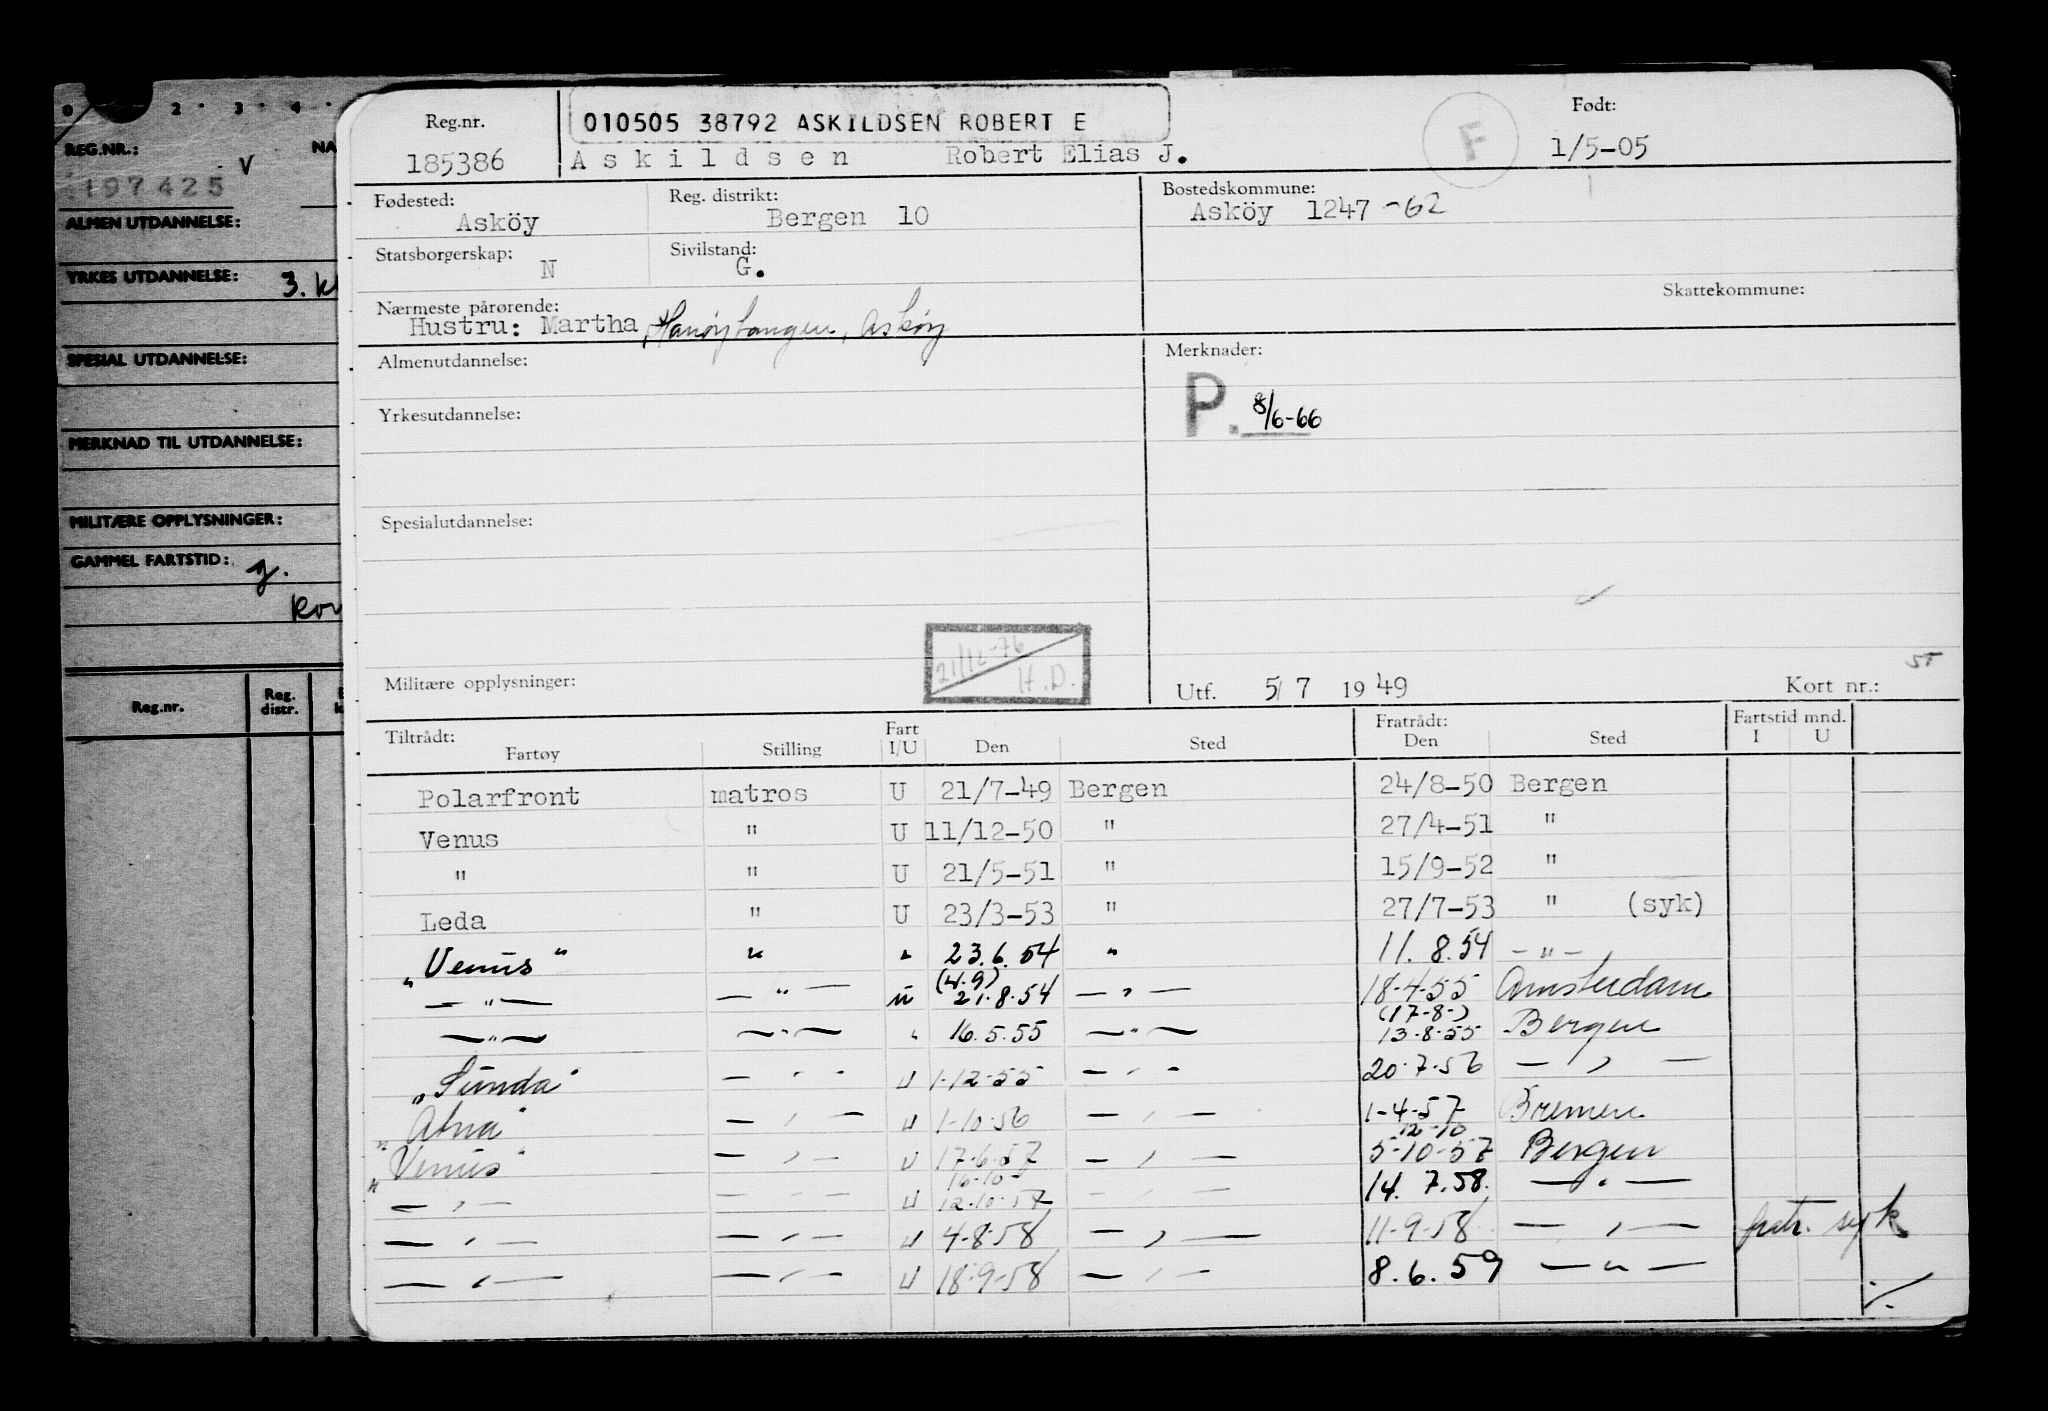 0 2 · 3 · 4 ·
REG.NR.: V NA
197425
ALMEN UTDANNELSE:
YRKES UTDANNELSE: 3. kl
SPESIAL UTDANNELSE:
MERKNAD TIL UTDANNELSE:
MILITÆRE OPPLYSNINGER:
GAMMEL FARTSTID: g.
kon
Reg.nr. Reg. distr.
Reg.nr. 010505 38792 ASKILDSEN ROBERT E F Født:
185386 Askildsen Robert Elias J. 1/5-05
Fødested: Reg. distrikt: Bostedskommune:
Asköy Bergen 10 Asköy 1247 -62
Statsborgerskap: Sivilstand:
N G.
Skattekommune:
Nærmeste pårørende:
Hustru: Martha, Hanøytangen, Askøy
Almenutdannelse: Merknader:
P. 8/6-66
Yrkesutdannelse:
Spesialutdannelse:
21/12-76 H.D.
Militære opplysninger: Utf. 5/7 1949 Kort nr.:
Tiltrådt: Fart Fratrådt: Fartstid mnd.
Fartøy Stilling I/U Den Sted Den Sted I U
Polarfront matros U 21/7-49 Bergen 24/8-50 Bergen
Venus " U 11/12-50 " 27/4-51 "
" " U 21/5-51 " 15/9-52 "
Leda " U 23/3-53 " 27/7-53 " (syk)
"Venus" " " 23.6.54 " 11.8.54 -"-
(4.9) 
-"- -"- u 21.8.54 -"- 18-4-55 Amsterdam
(17-8-)
-"- -"- " 16.5.55 -"- 13-8-55 Bergen
"Sunda" -"- U 1-12-55 -"- 20-7-56 -"-
"Atna" -"- U 1-10-56 -"- 1-4-57 Bremen
12-10
"Venus" -"- U 17-6-57 -"- 5-10-57 Bergen
16-10-
-"- -"- U 12-10-57 -"- 14.7.58. -"-
-"- -"- U 4-8-58 -"- 11-9-58 -"- fratr. syk
-"- -"- U 18-9-58 -"- 8.6.59 -"-